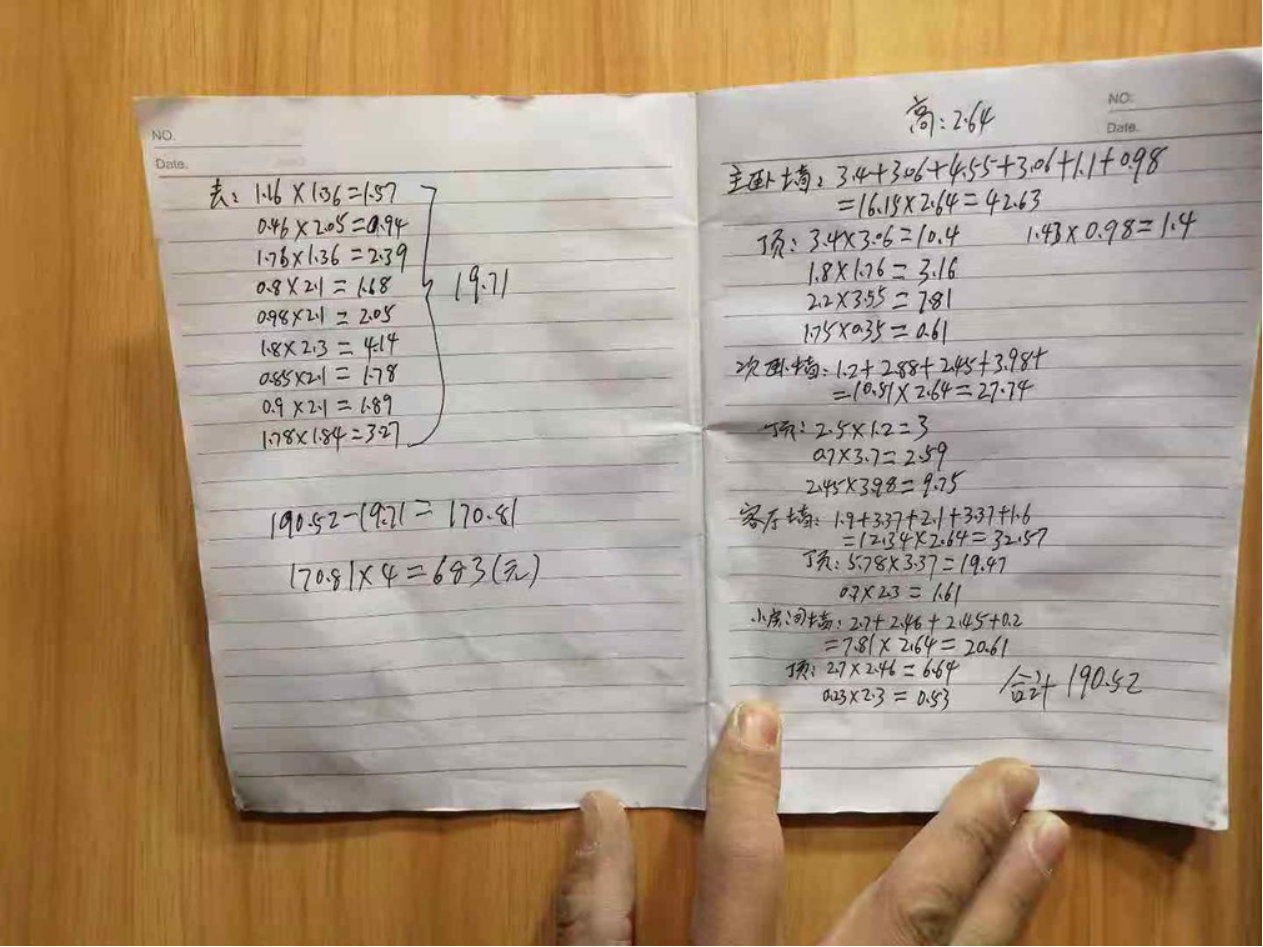 NO.
Date.
去: 1.16×1.36=1.57
0.46×2.05=0.94
1.76×1.36=2.39
0.8×2.1=1.68
0.98×2.1=2.05
1.8×2.3=4.14
0.85×2.1=1.78
0.9×2.1=1.89
1.78×1.84=3.27
19.71
190.52-19.71=170.81
170.81×4=683(元)
NO.
Date.
高: 2.64
主卧墙: 3.4+3.06+4.55+3.06+1.1+0.98
=16.15×2.64=42.63
顶: 3.4×3.06=10.4 1.43×0.98=1.4
1.8×1.76=3.16
2.2×3.55=7.81
1.75×0.35=0.61
次卧墙: 1.2+2.88+2.45+3.98+
=10.51×2.64=27.74
顶: 2.5×1.2=3
0.7×3.7=2.59
2.45×3.98=9.75
客厅墙: 1.9+3.37+2.1+3.37+1.6
=12.34×2.64=32.57
顶: 5.78×3.37=19.47
0.7×2.3=1.61
小房间墙: 2.7+2.46+2.45+0.2
=7.81×2.64=20.61
顶: 2.7×2.46=6.64
0.23×2.3=0.53
合计 190.52